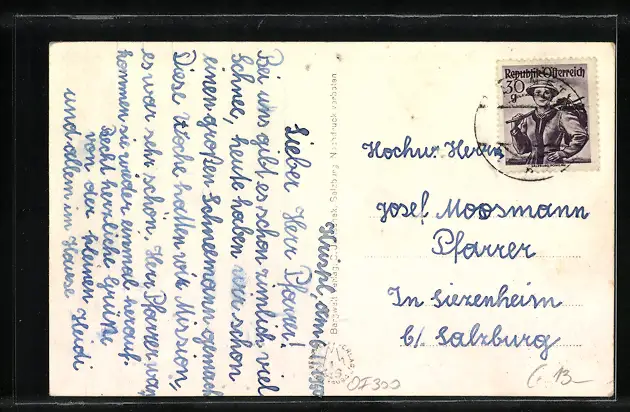 Lieber Herr Pfarrer!
Bei uns gibt es schon ziemlich viel
Schnee, heute haben wir schon
einen großen Schneemann gemacht
Diese Woche hatten wir Mission,
es war sehr schön. Herr Pfarrer
kommen sie wieder einmal herauf.
Recht herzliche Grüße
von der kleinen Heidi
und allem im Hause
Salzburg. Nachdruck verboten
Republik Österreich
30
g
Hochw. Herrn
Josef Moosmann
Pfarrer
In Siezenheim
b/ Salzburg